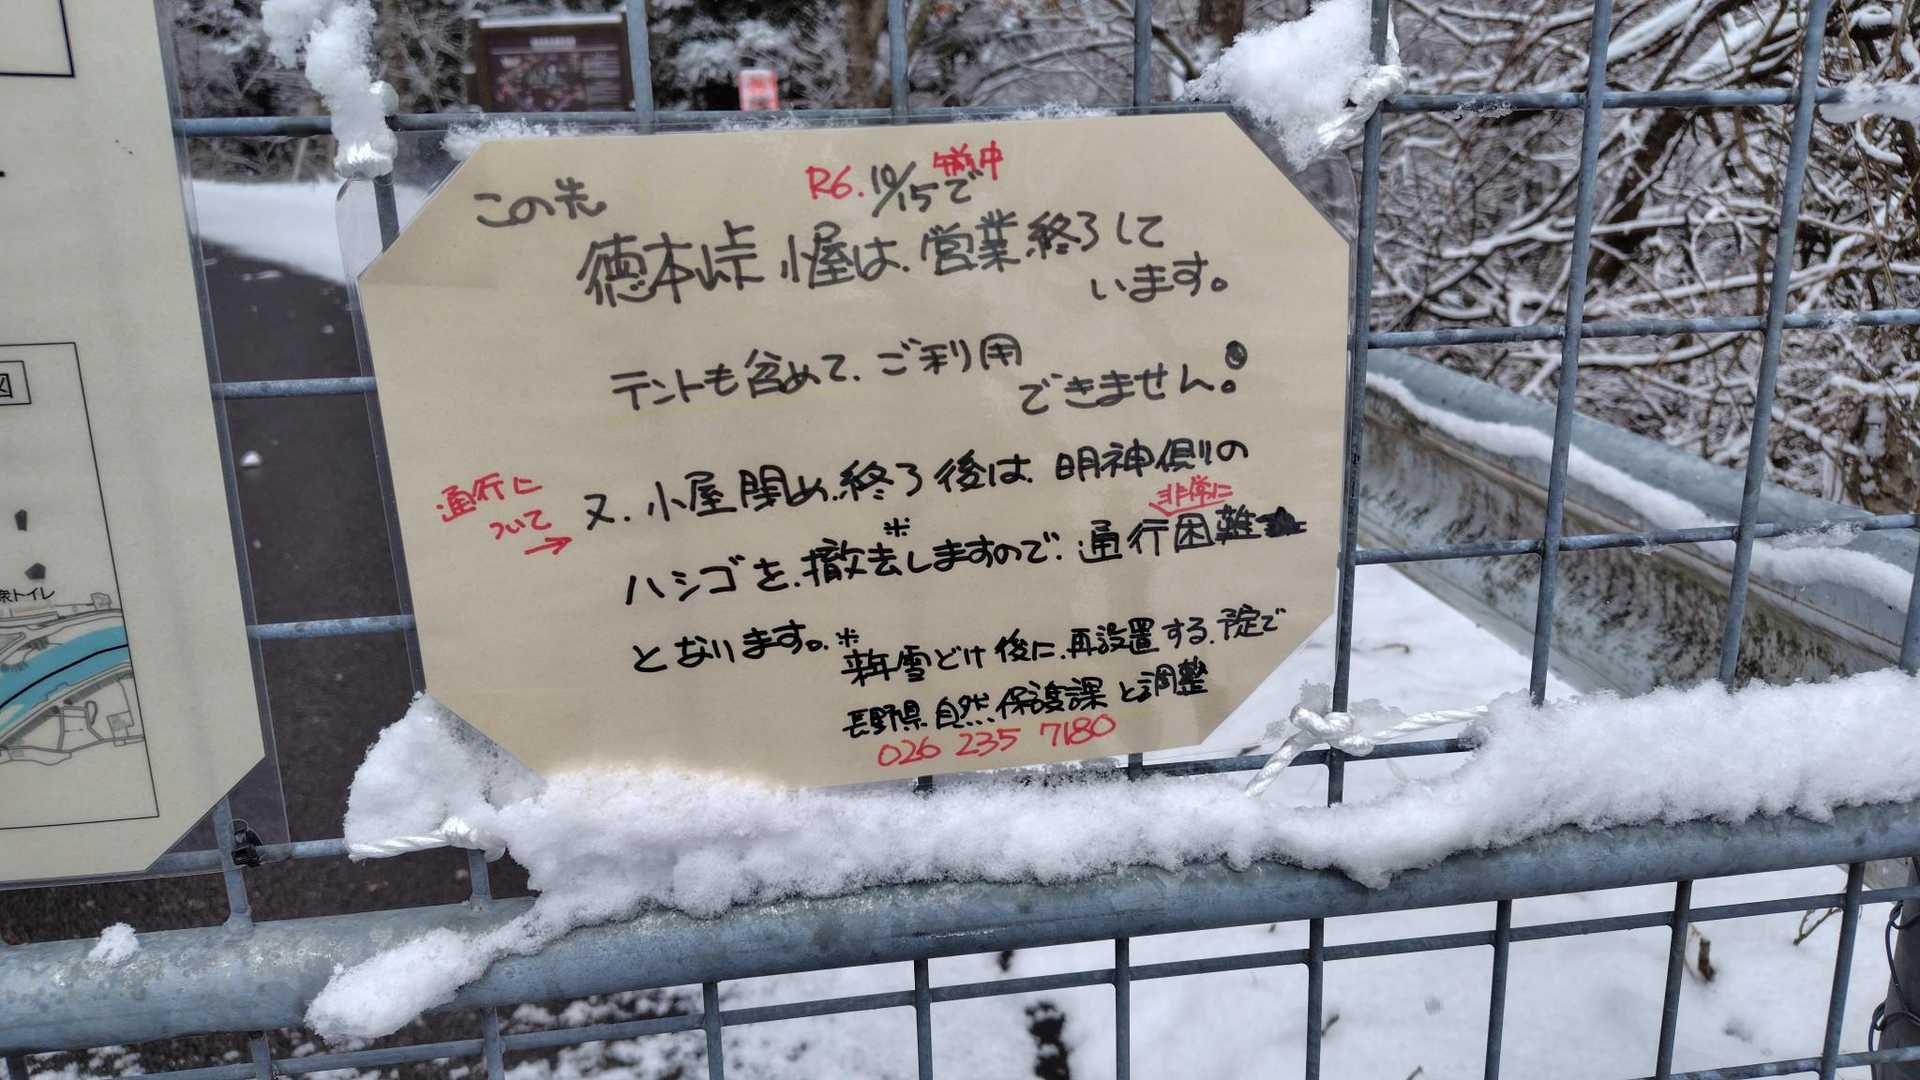 この先
R6.10/15で
午前中
徳本峠小屋は、営業終了して
います。
テントも含めて、ご利用
できません。
通行に
ついて
→
又、小屋閉め、終了後は、明神側の
非常に
ハシゴを、撤去※しますので、通行困難
となります。※来年雪どけ後に、再設置する、予定で
長野県自然保護課と調整
026 235 7180
図
衆トイレ